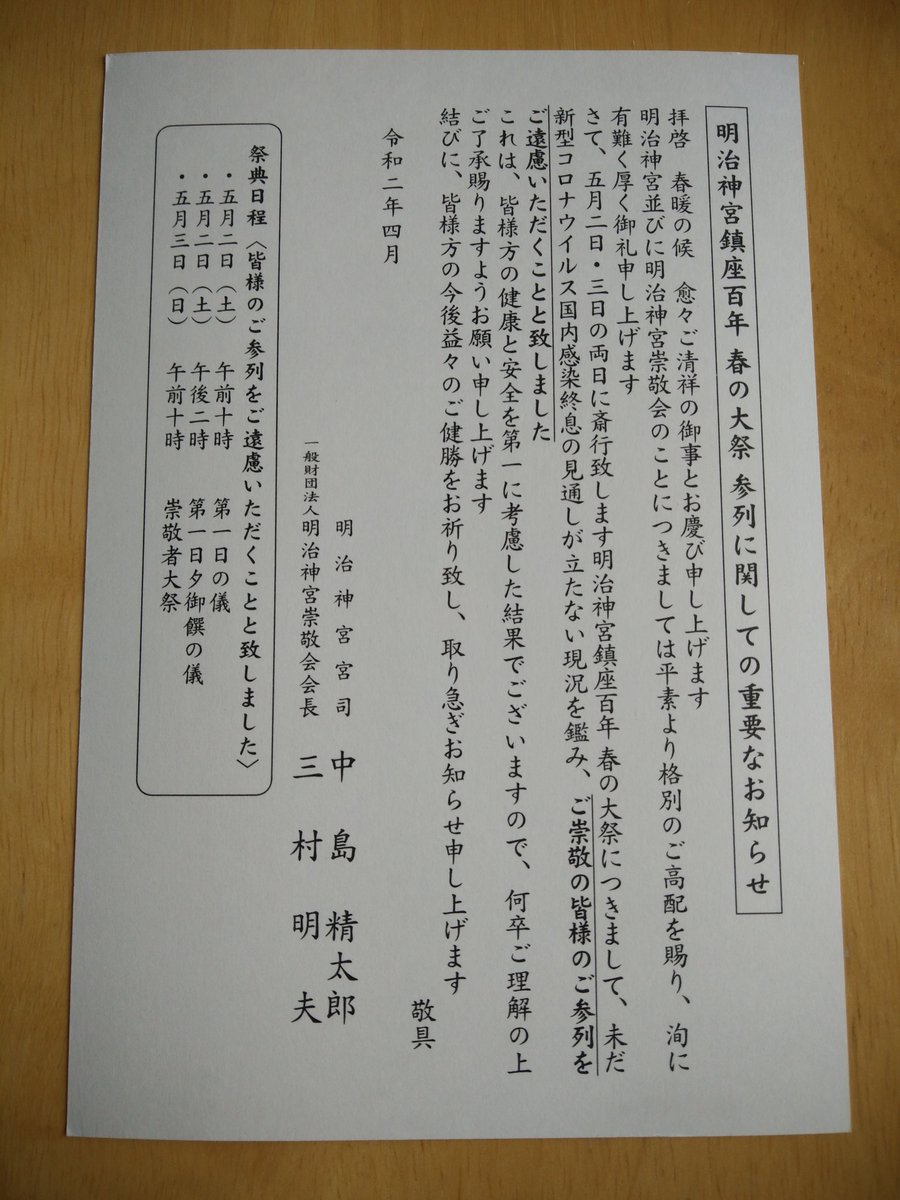 明治神宮鎮座百年 春の大祭 参列に関しての重要なお知らせ
拝啓　春暖の候　愈々ご清祥の御事とお慶び申し上げます
明治神宮並びに明治神宮崇敬会のことにつきましては平素より格別のご高配を賜り、洵に
有難く厚く御礼申し上げます
さて、五月二日・三日の両日に斎行致します明治神宮鎮座百年 春の大祭につきまして、未だ
新型コロナウイルス国内感染終息の見通しが立たない現況を鑑み、ご崇敬の皆様のご参列を
ご遠慮いただくことと致しました
これは、皆様方の健康と安全を第一に考慮した結果でございますので、何卒ご理解の上
ご了承賜りますようお願い申し上げます
結びに、皆様方の今後益々のご健勝をお祈り致し、取り急ぎお知らせ申し上げます
敬具
令和二年四月
明治神宮宮司　中島精太郎
一般財団法人明治神宮崇敬会会長　三村明夫
祭典日程〈皆様のご参列をご遠慮いただくことと致しました〉
・五月二日（土）　午前十時　第一日の儀
・五月二日（土）　午後二時　第一日夕御饌の儀
・五月三日（日）　午前十時　崇敬者大祭